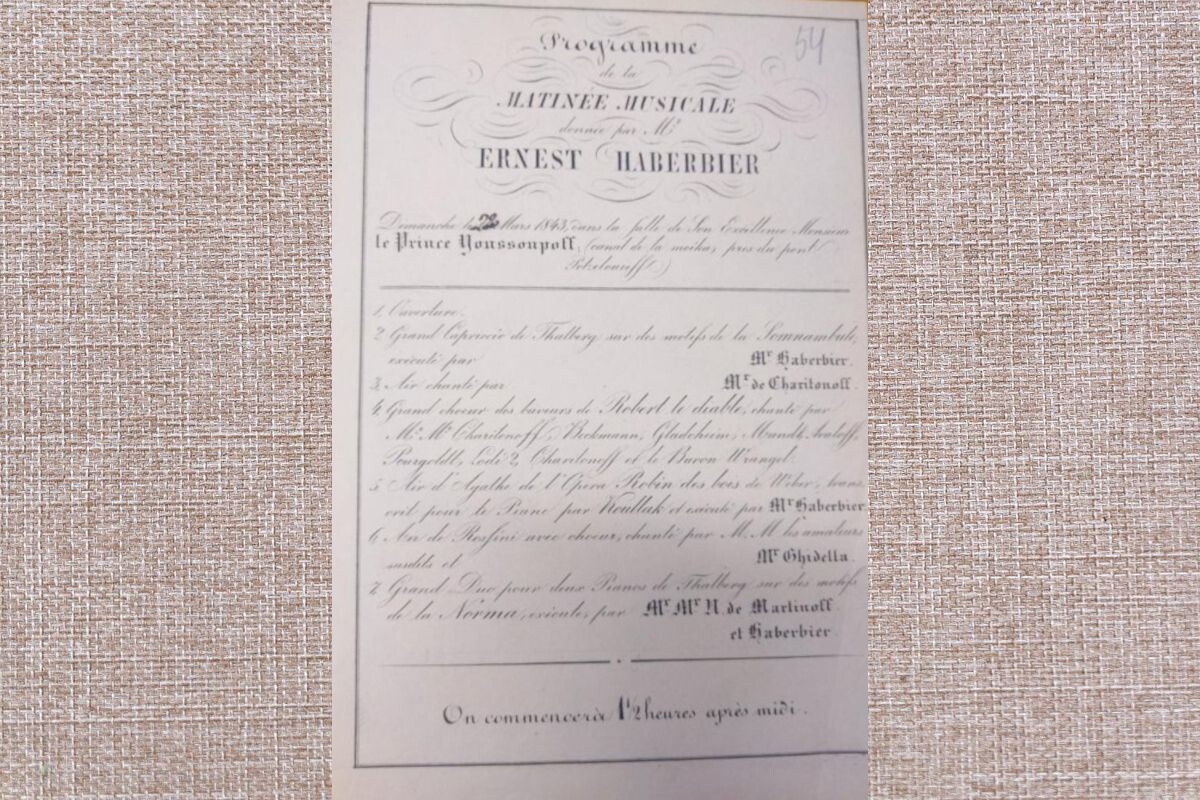 54
Programme
de la
MATINÉE MUSICALE
donnée par Mr
ERNEST HABERBIER
Dimanche le Mars 1843, dans la salle de Son Excellence Monsieur
le Prince Youssoupoff, (canal de la moika, près du pont
Potzeloureff)
1, Ouverture.
2, Grand Capriccio de Thalberg sur des motifs de la Somnambule,
exécuté par Mr Haberbier.
3, Air chanté par Mr de Charitonoff.
4, Grand choeur des buveurs de Robert le diable, chanté par
Mr Mr Charitonoff, Beckmann, Gladcheim, Mundt, Avaloff,
Pourgoldt, Lodi 2, Charitonoff et le Baron Wrangel.
5, Air d'Agathe de l'Opéra Robin des bois de Weber, trans
crit pour le Piano par Koullak et exécuté par Mr Haberbier
6, Air de Rossini avec choeur, chanté par M. M. les amateurs
susdits et Mr Ghidella.
7, Grand Duo pour deux Pianos de Thalberg sur des motifs
de la Norma, exécuté, par Mr Mr N. de Martinoff
et Haberbier.
On commencera à 1 1/2 heures après midi.